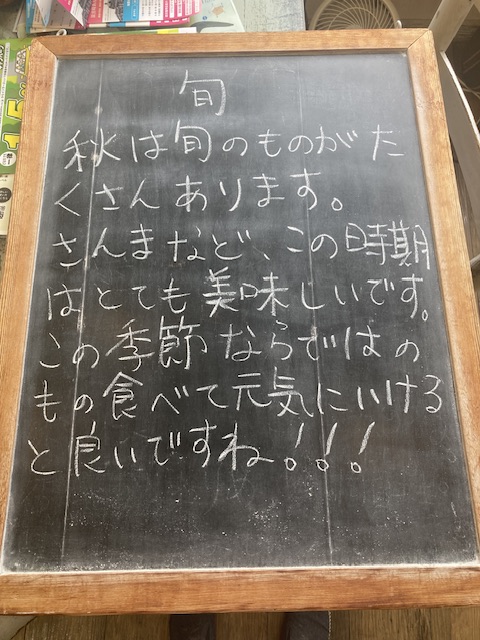 旬
秋は旬のものがた
くさんあります。
さんまなど、この時期
はとても美味しいです。
この季節ならではの
もの食べて元気にいける
と良いですね!!!